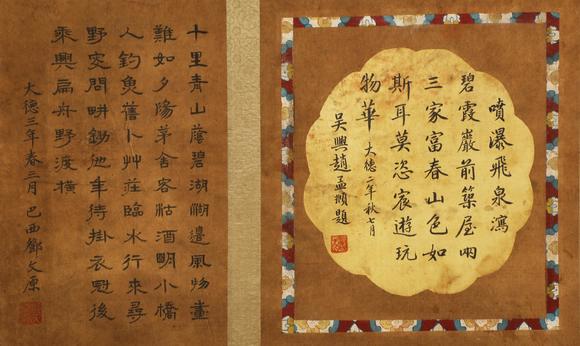 噴瀑飛泉瀉
碧霞巖前築屋兩
三家富春山色如
斯耳莫恣宸遊玩
物華 大德二年秋七月
吳興趙孟頫題
十里青山蔭碧湖湖邊風物畫
難如夕陽茅舍客沽酒明小橋
人釣魚舊卜艸莊臨水行來尋
野叟問畊鋤他年待掛衣冠後
乘興扁舟野渡橫
大德三年春三月 巴西鄧文原